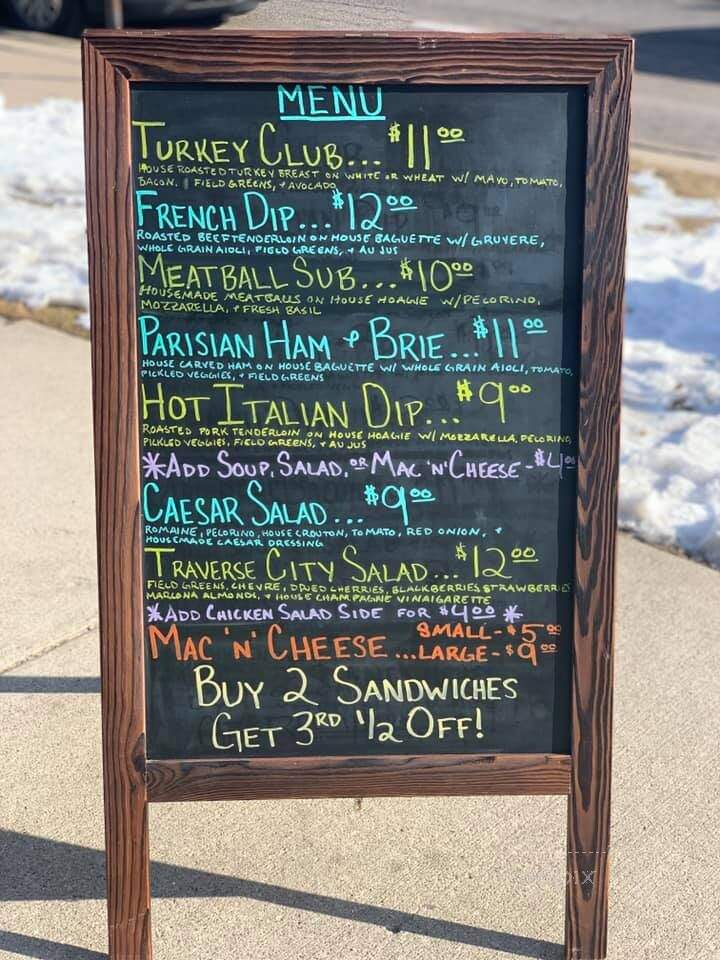 MENU
TURKEY CLUB... $11.00
HOUSE ROASTED TURKEY BREAST ON WHITE OR WHEAT W/ MAYO, TOMATO,
BACON, FIELD GREENS, + AVOCADO
FRENCH DIP... $12.00
ROASTED BEEF TENDERLOIN ON HOUSE BAGUETTE W/ GRUYERE,
WHOLE GRAIN AIOLI, FIELD GREENS, + AU JUS
MEATBALL SUB... $10.00
HOUSEMADE MEATBALLS ON HOUSE HOAGIE W/PECORINO,
MOZZARELLA, + FRESH BASIL
PARISIAN HAM + BRIE... $11.00
HOUSE CARVED HAM ON HOUSE BAGUETTE W/ WHOLE GRAIN AIOLI, TOMATO,
PICKLED VEGGIES, + FIELD GREENS
HOT ITALIAN DIP... $9.00
ROASTED PORK TENDERLOIN ON HOUSE HOAGIE W/ MOZZARELLA, PECORINO,
PICKLED VEGGIES, FIELD GREENS, + AU JUS
*ADD SOUP, SALAD, OR MAC 'N' CHEESE - $4.00
CAESAR SALAD... $9.00
ROMAINE, PECORINO, HOUSE CROUTON, TOMATO, RED ONION, +
HOUSEMADE CAESAR DRESSING
TRAVERSE CITY SALAD... $12.00
FIELD GREENS, CHEVRE, DRIED CHERRIES, BLACKBERRIES, STRAWBERRIES
MARCONA ALMONDS, + HOUSE CHAMPAGNE VINAIGARETTE
*ADD CHICKEN SALAD SIDE FOR $4.00 *
MAC 'N' CHEESE ... SMALL - $5.00
LARGE - $9.00
BUY 2 SANDWICHES
GET 3RD 1/2 OFF!